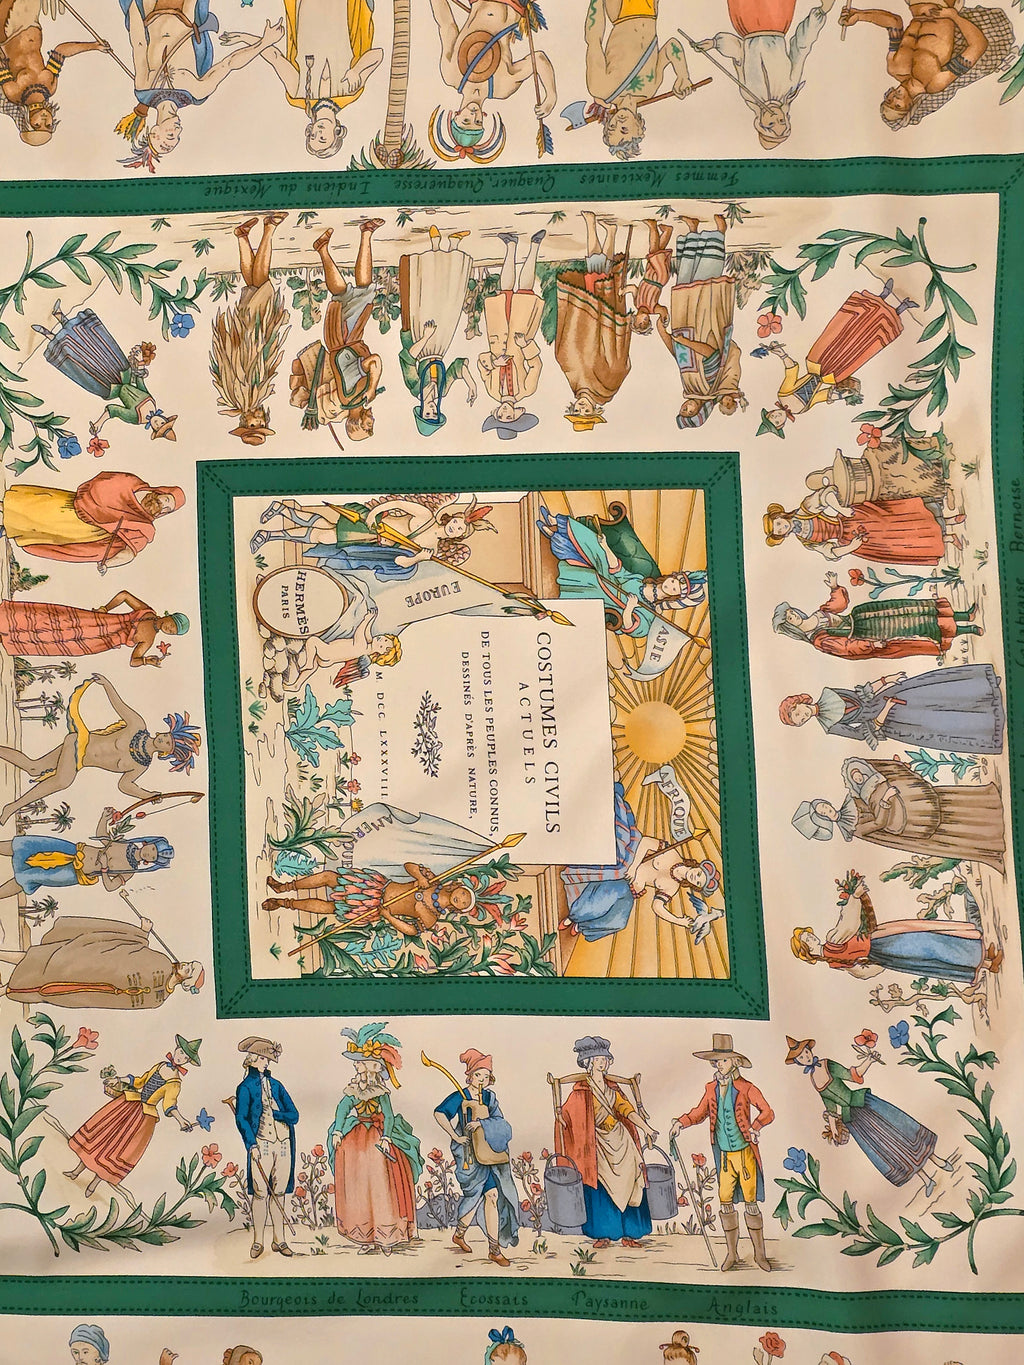 Femmes Mexicaines
Quaquer, Quaqueresse
Indiens du Mexique
Bernoise
EUROPE
ASIE
HERMÈS
PARIS
COSTUMES CIVILS
ACTUELS
DE TOUS LES PEUPLES CONNUS,
DESSINÉS D'APRÈS NATURE,
M DCC. LXXXVIII
AFRIQUE
AMERIQUE
Bourgeois de Londres
Ecossais
Paysanne
Anglais